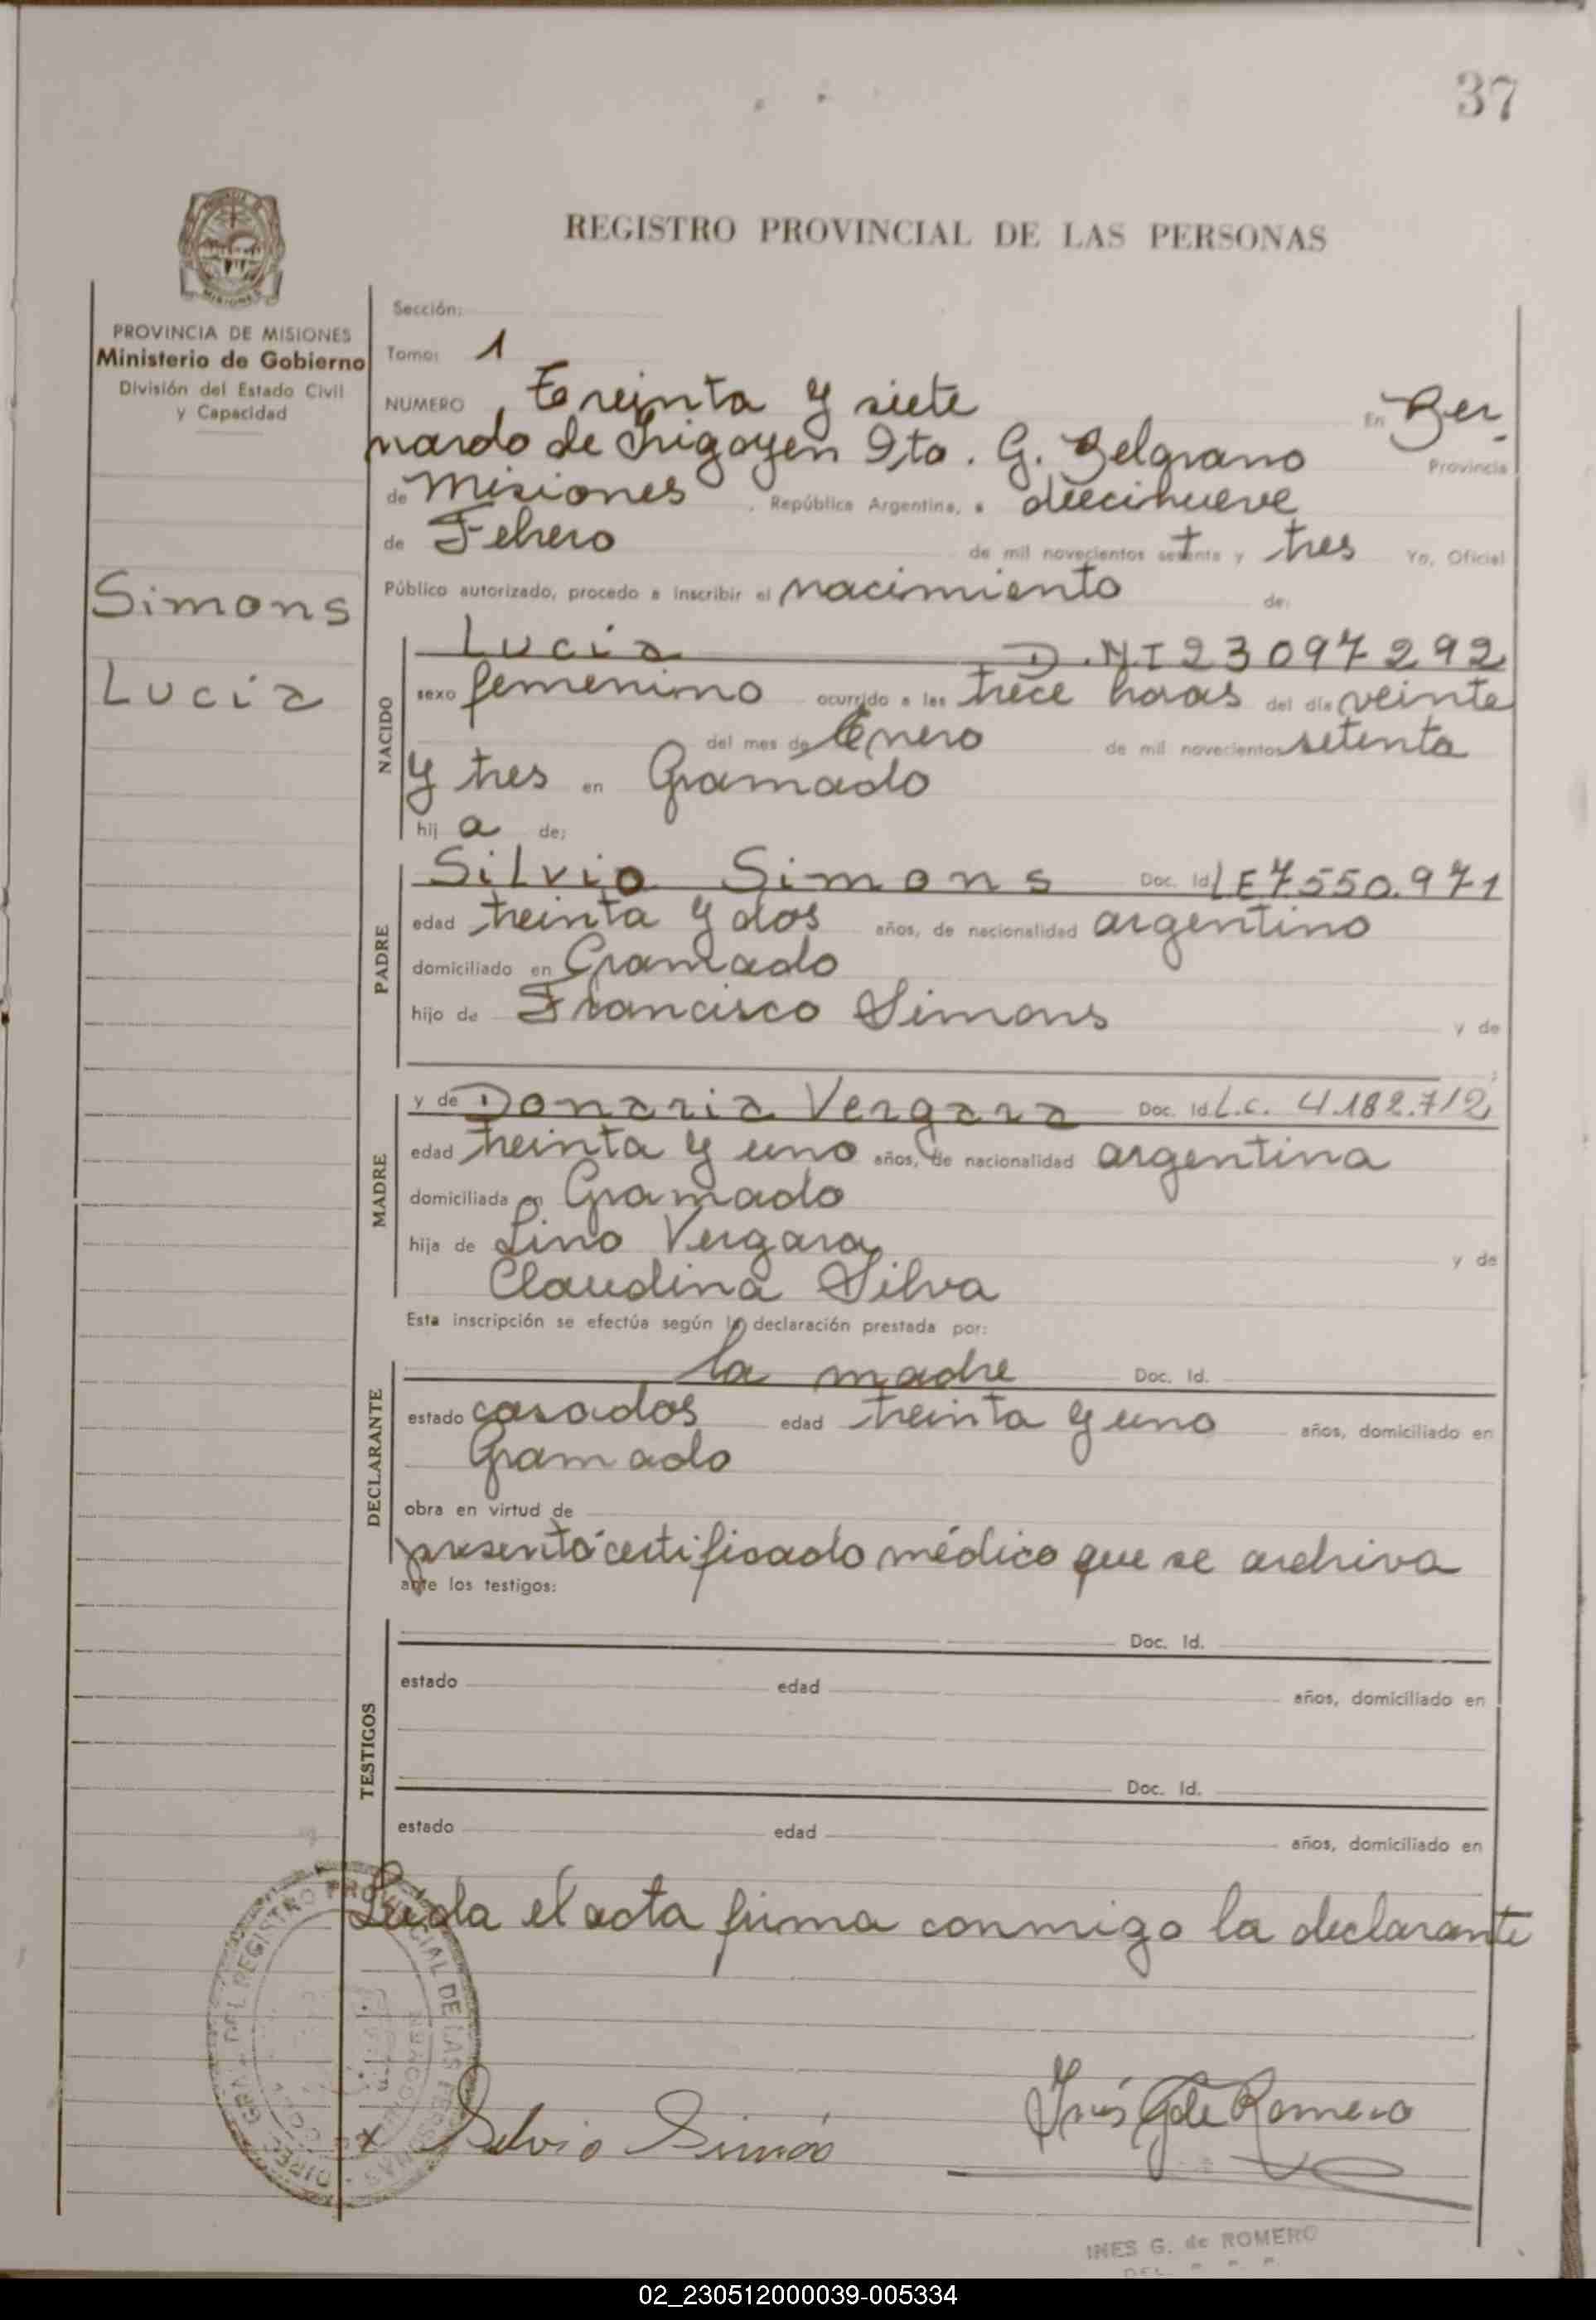 37
REGISTRO PROVINCIAL DE LAS PERSONAS
MISIONES
PROVINCIA DE MISIONES
Ministerio de Gobierno
División del Estado Civil
y Capacidad
Simons
Lucía
Sección:
Tomo: 1
NUMERO, Treinta y siete En Ber-
nardo de Irigoyen Dto. G. Belgrano Provincia
de Misiones, República Argentina, a diecinueve
de Febrero de mil novecientos setenta y tres Yo, Oficial
Público autorizado, procedo a inscribir el nacimiento de:
NACIDO
Lucía D.NI 23097292
sexo femenino ocurrido a las trece horas del día veinte
del mes de Enero de mil novecientos setenta
y tres en Gramado
hij a de:
PADRE
Silvio Simons Doc. Id LE 7550.971
edad treinta y dos años, de nacionalidad argentino
domiciliado en Gramado
hijo de Francisco Simons y de
MADRE
y de Donaria Vergara Doc. Id L.C. 4.182.712
edad treinta y uno años, de nacionalidad argentina
domiciliada en Gramado
hija de Lino Vergara y de
Claudina Silva
Esta inscripción se efectúa según la declaración prestada por:
DECLARANTE
la madre Doc. Id.
estado casados edad treinta y uno años, domiciliado en
Gramado
obra en virtud de
presentó certificado médico que se archiva
ante los testigos:
TESTIGOS
Doc. Id.
estado edad años, domiciliado en
Doc. Id.
estado edad años, domiciliado en
Leída el acta firma conmigo la declarante
DIREC. GRAL. DEL REGISTRO PROVINCIAL DE LAS PERSONAS
x Silvio Simón
Inés G de Romero
INES G. de ROMERO
02_230512000039-005334